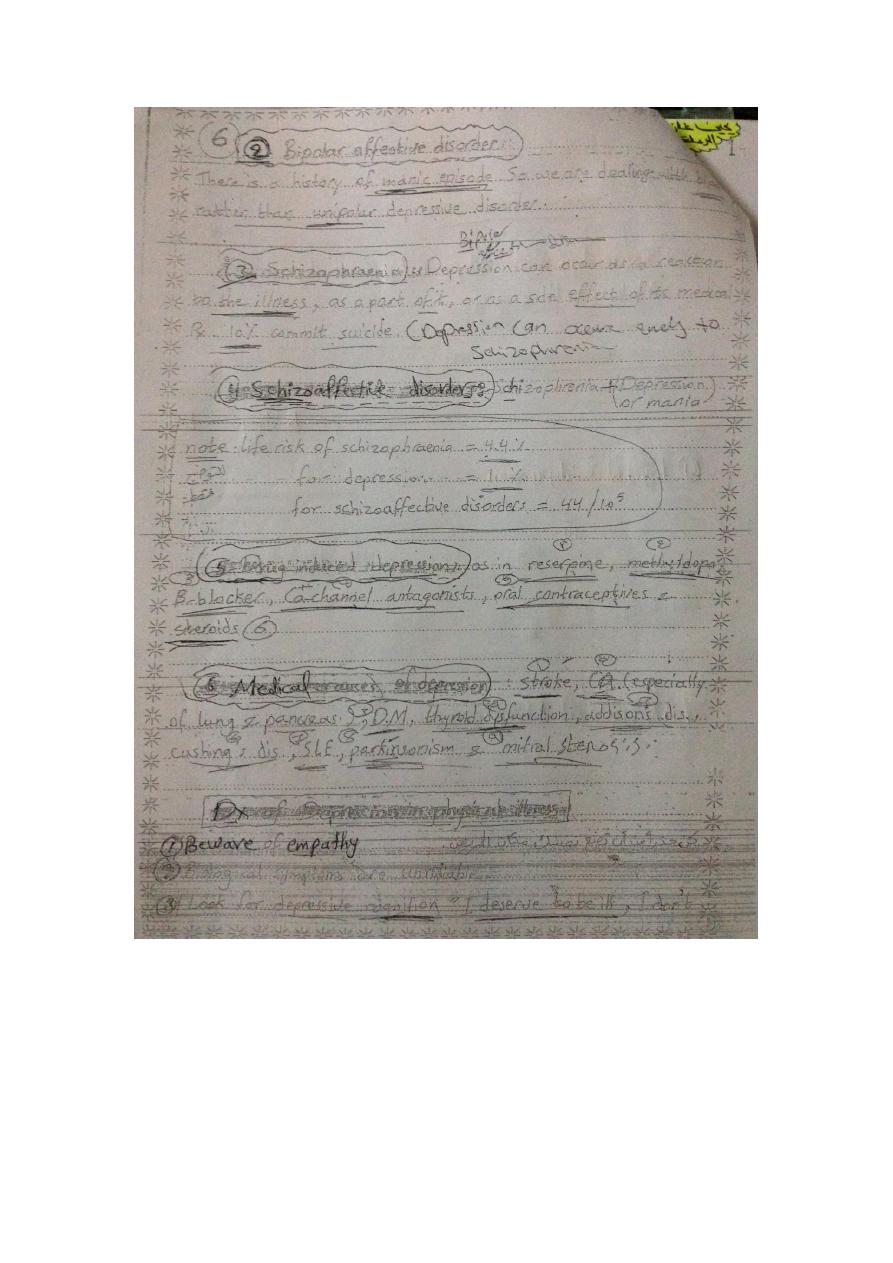 6 ② Bipolar affective disorder:
There is a history of manic episode. So we are dealing with
ratther than unipolar depressive disorder.
Bipolar
③ Schizophraenia: Depression can occur as a reaction
to the illness, as a part of it, or as a side effect of its medical
Rx 10% commit suicide. (Depression can occur to
Schizophrenia
4 Schizoaffective disorders: Schizophrenia + (Depression
or mania)
note: life risk of schizophraenia = 4.4%
for depression =
for schizoaffective disorders = 44/10⁵
5 Drug induced depression: as in reserpine, methyldopa
③ B-blocker, Ca channel antagonists, ⑤ oral contraceptives &
steroids ⑥
6 Medical causes of depression: stroke, CA (especially
of lung & pancreas), D.M, thyroid dysfunction, addison's dis.,
cushing's dis, SLE, parkinsonism & mitral stenosis.
Dx of Depression in physical illness
① Beware of empathy
② Biological symptoms are unreliable
③ Look for depressive cognition "I deserve to be ill, I don't